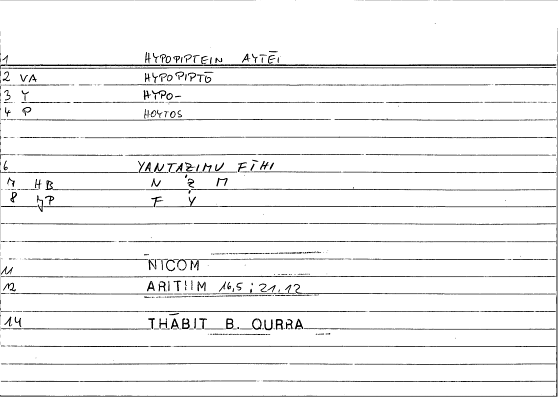 1 HYPOPIPTEIN AYTĒI
2 VA HYPOPIPTŌ
3 Y HYPO-
4 P HOYTOS
6 YANTAẒIMU FĪHI
7 HB N Ẓ M
8 P F Y
11 NICOM
12 ARITHM 16,5 ; 21,12
14 THĀBIT B. QURRA